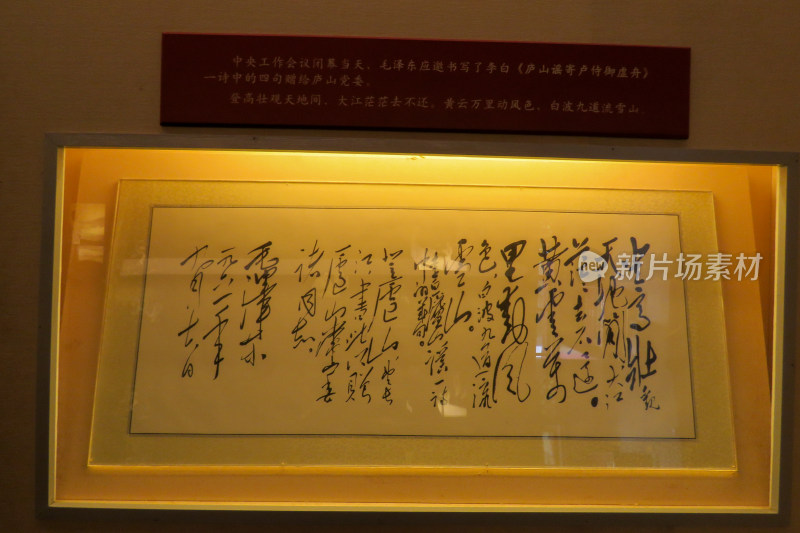 中央工作会议闭幕当天，毛泽东应邀书写了李白《庐山谣寄卢侍御虚舟》
一诗中的四句赠给庐山党委。
登高壮观天地间，大江茫茫去不还。黄云万里动风色，白波九道流雪山。
登高壯觀
天地间大江
茫茫去不还。
黄雲萬
里動風
色，白波九道流
雪山。
李白廬山謠一诗
中的几句。
登廬山，望长
江，書此以贈
廬山黨委
諸同志。
毛澤東
一九六一年
new 新片场素材